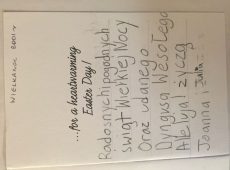 WIELKANOC 2001 r.
...for a heartwarming
Easter Day!
Radosnych i pogodnych
Świąt Wielkiej Nocy
Oraz udanego
Dyngusa Wesołego
Alleluja! życzą
Joanna i Julia